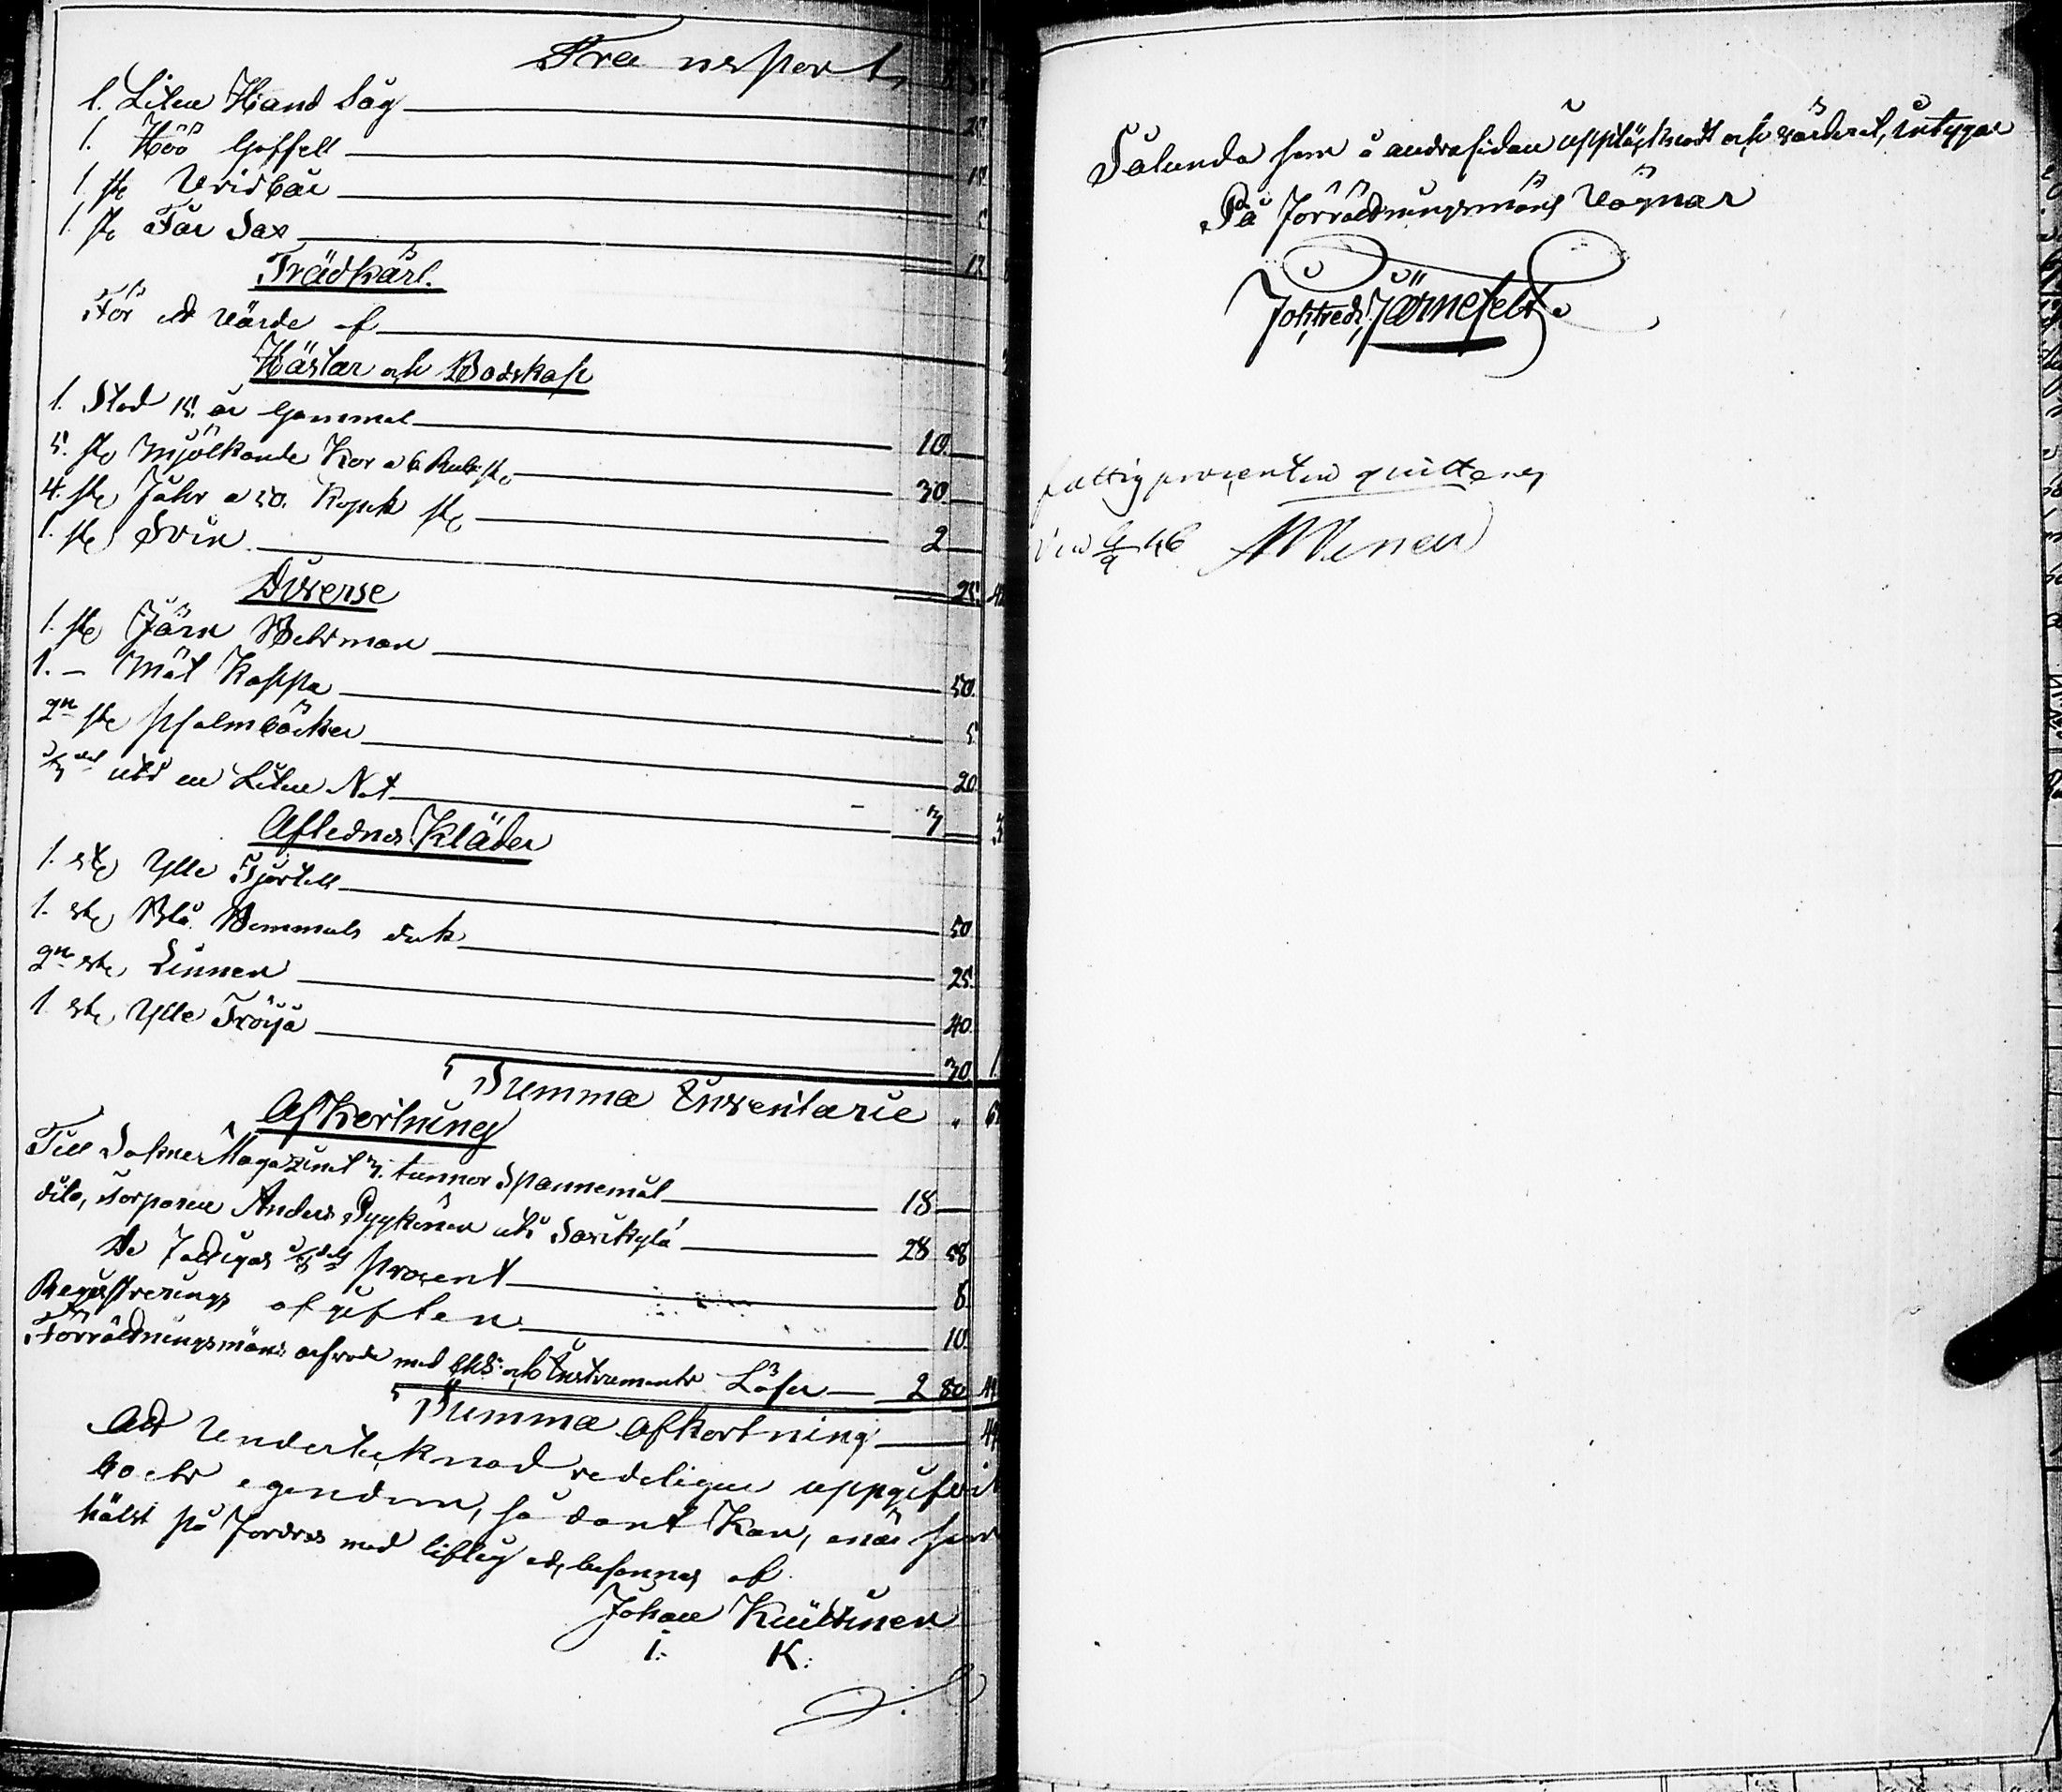 Transport
1. Liten Hand Såg 20
1. Höö Gaffell 15
1 st. Vridbår 5
1. st. Får Sax 12
Trädkärl.
För ett värde af
Hästar och Bodskap
1. Stod 15. år Gammal 10
5. st. Mjölkande Kor a 6 Rub. st. 30
4. st. Fåhr a 50. Kopek st. 2
1. st. Svin 25
Diverse
1. st. Järn Betsman 50
1. — Måt Kappa 5
2ne st. Psalmböcker 20
1/3 del uti en Liten Not 3
Aflednes Kläder
1. st. Ylle Tjortell 50
1. st. Blå Wammals 25
2ne st. Linnen 40
1. st. Ylle Tröija 30 1
Summa Inventarie
Afkortning
Till Sokne Magazinet 3. tunnor Spannemål 18
dito, torparen Anders Pyykönen uti Sarikylä 28 58
De Fattigas 1/8 dels procent 8
Registrerings afgiften 10
Förrättningsmäns arfvode med och Instruments Lösen 2 80
Summa Afkortning
Att Undertecknad redeligen uppgifvit
boets egendom, så dant Kan, enär
hälst på fordras med liflig ed, besannas af
Johan Knuttinen
I. K.
Sålunda som å andra sidan upptäcknadt och värderat, intygar
På Förrättningsmäns Vägnar
Joh, Fredr, Järnefelt
fattigprocenten quitteras
den 46